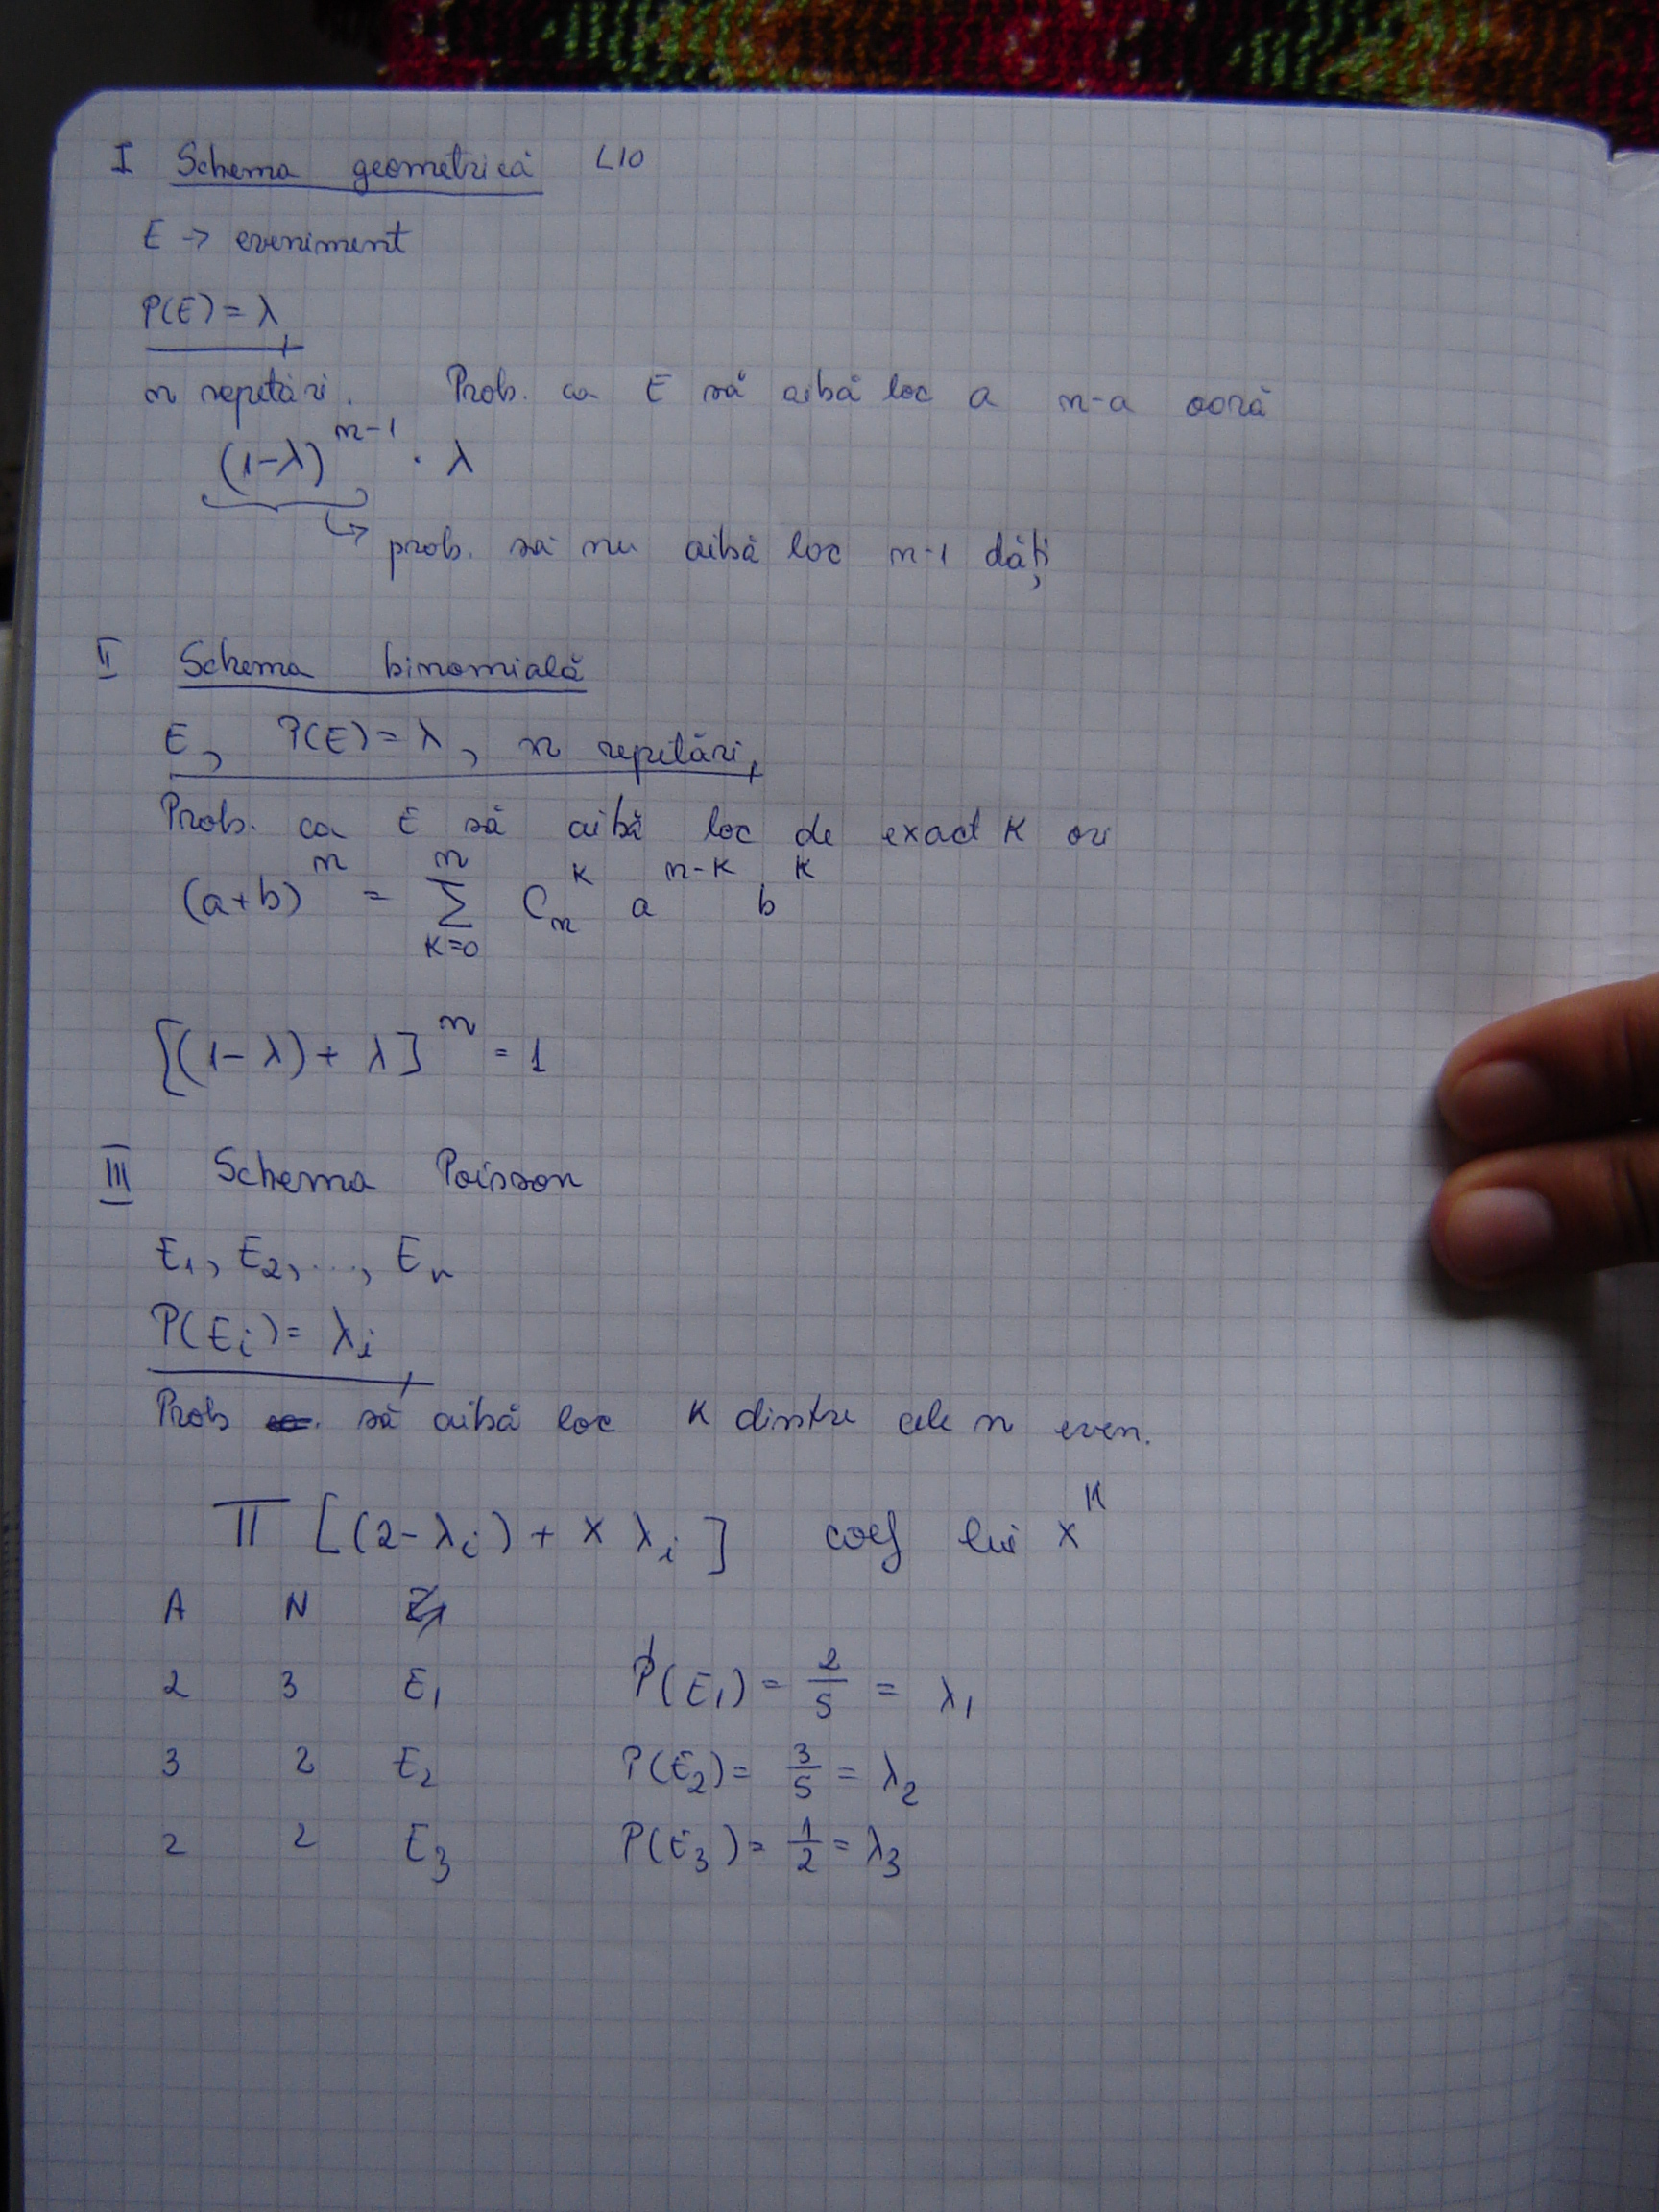 I Schema geometrică L10
E → eveniment
P(E) = λ
n repetări. Prob. ca E să aibă loc a n-a oară
(1-λ)^{n-1} · λ
↳ prob. să nu aibă loc n-1 dăți
II Schema binomială
E, P(E) = λ, n repetări,
Prob. ca E să aibă loc de exact K ori
(a+b)^n = Σ_{K=0}^{n} C_n^K a^{n-K} b^K
[(1-λ) + λ]^n = 1
III Schema Poisson
E_1, E_2, ..., E_n
P(E_i) = λ_i
Prob să aibă loc K dintre cele n even.
Π [(2-λ_i) + x λ_i] coef lui x^K
A N
2 3 E_1 P(E_1) = 2/5 = λ_1
3 2 E_2 P(E_2) = 3/5 = λ_2
2 2 E_3 P(E_3) = 1/2 = λ_3